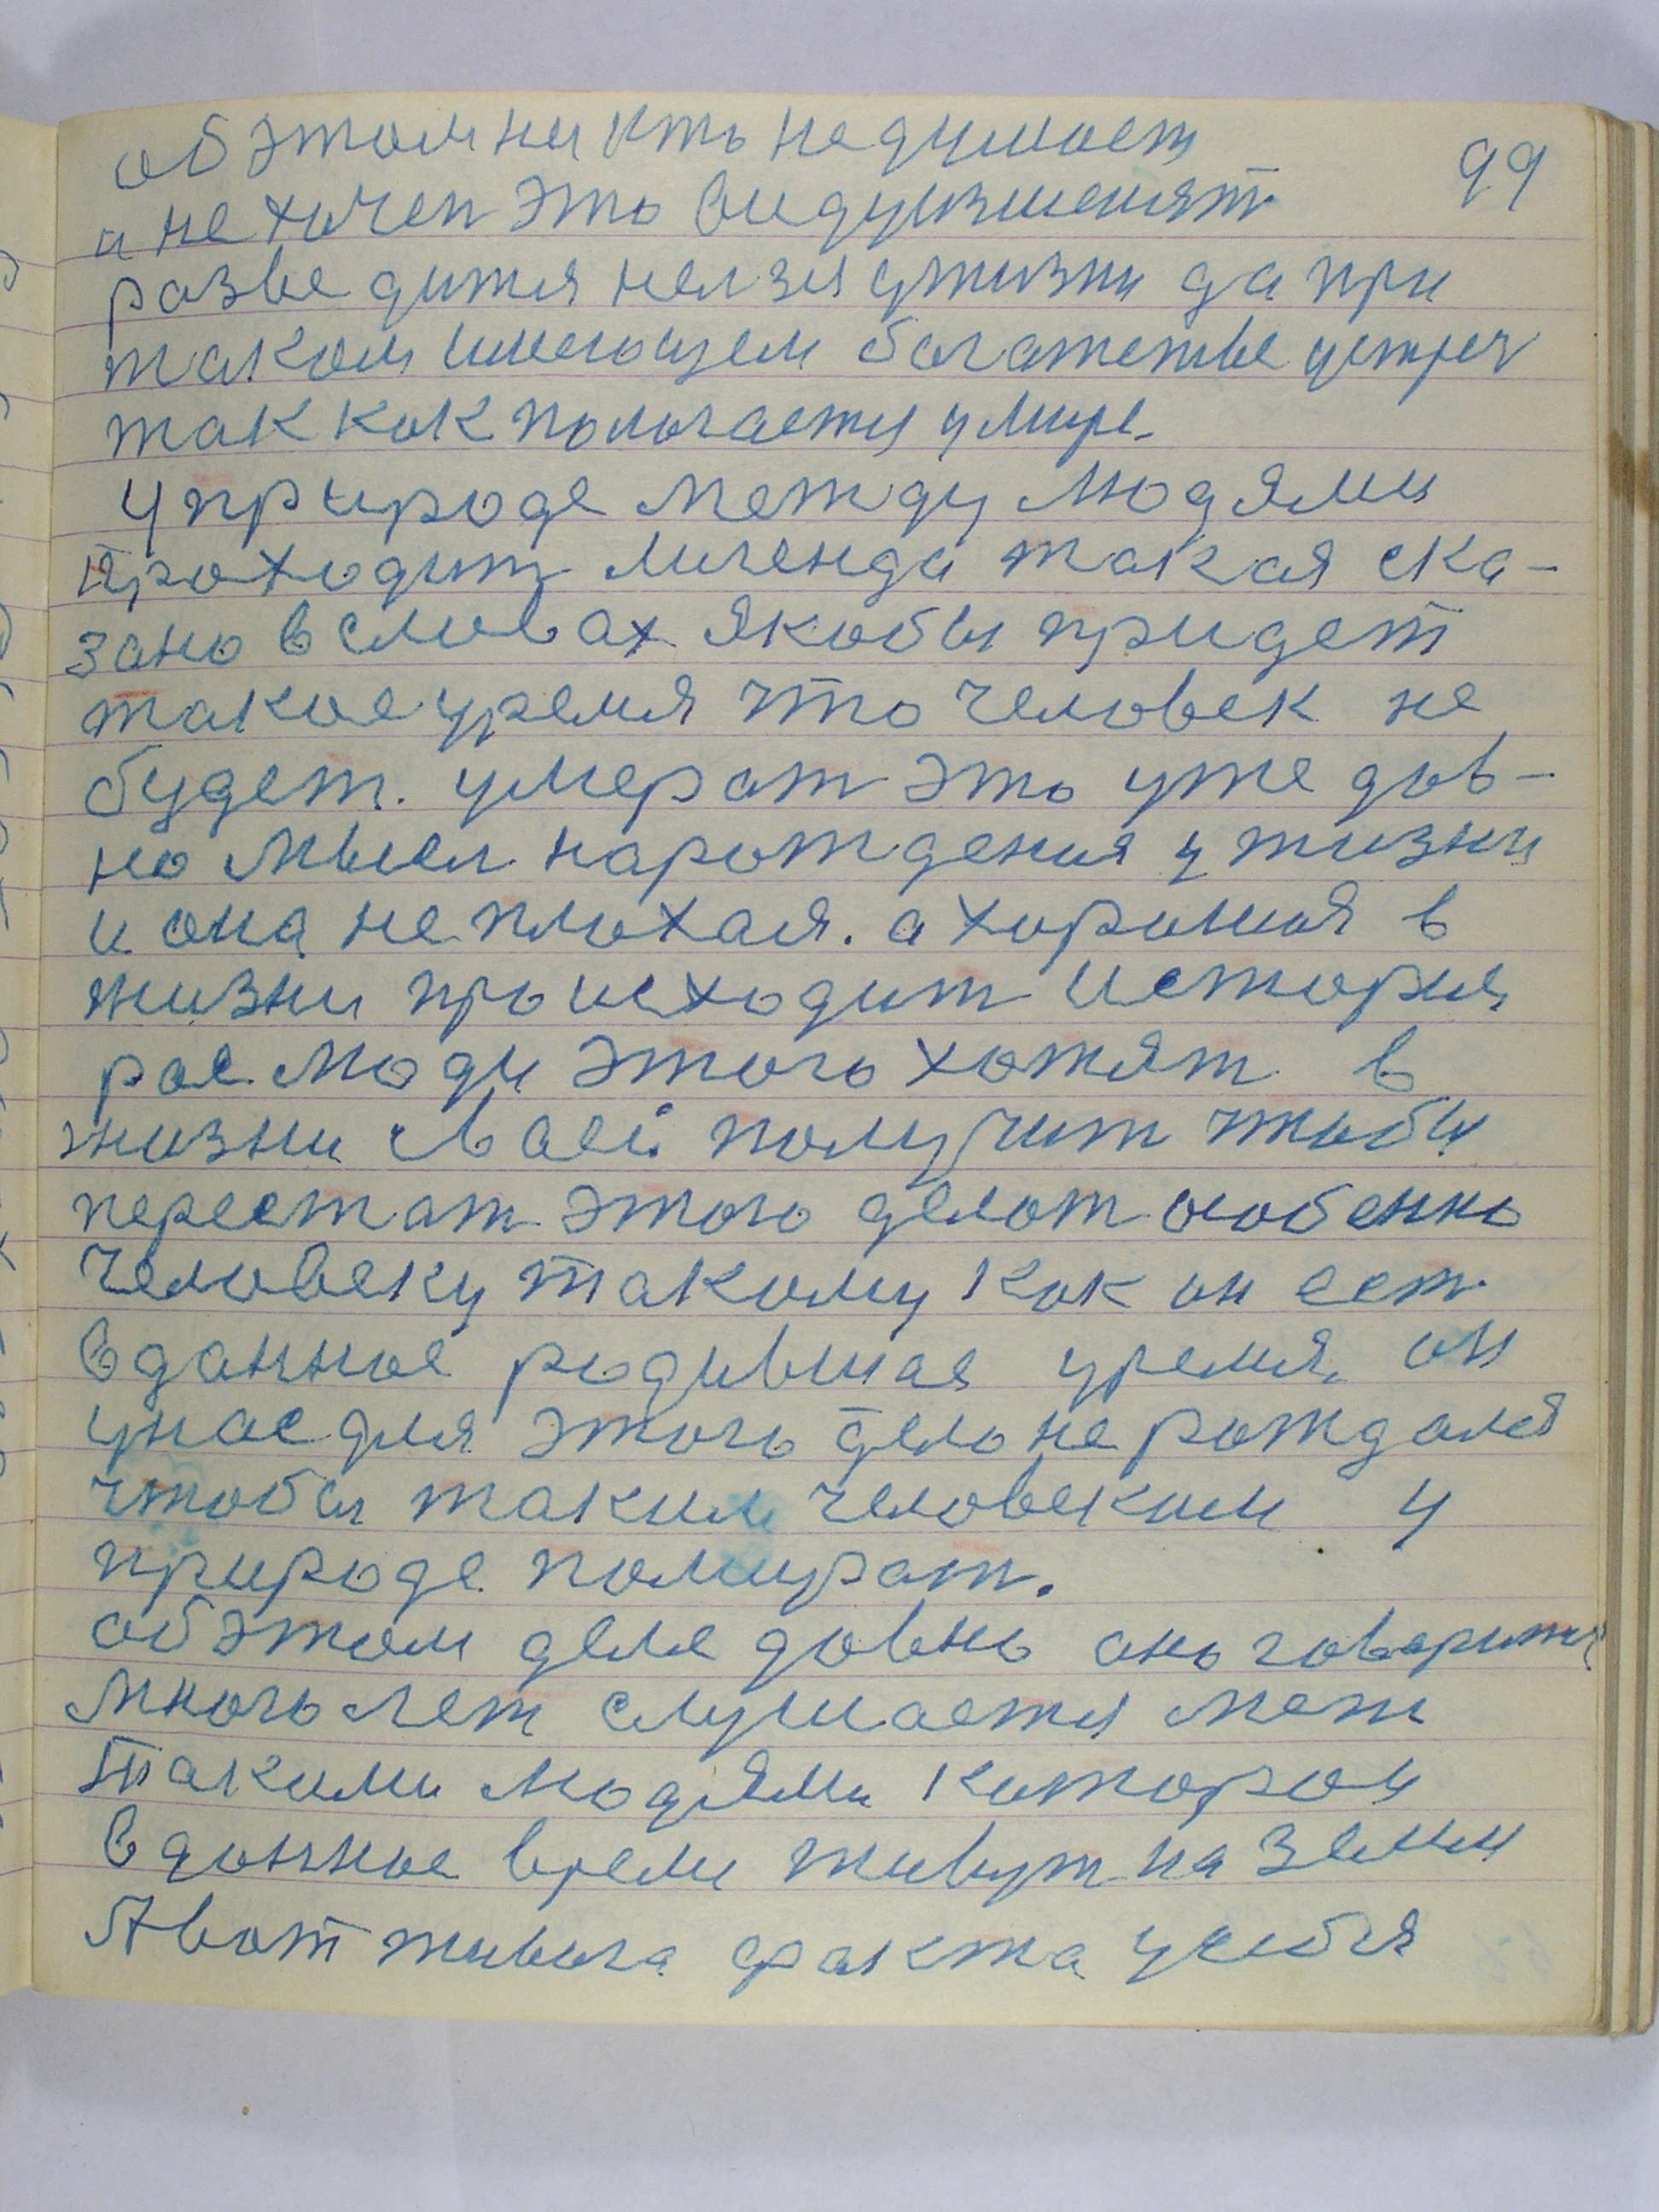 99
об этом ни кть не думает
и не хочеп это виду изменят
разве дится нелзя ужизни да при
таком имеющем богатстве устреч
так как пологается умире.
У природе между людями
проходит легенда такая ска-
зано в словах якобы придет
такое уремя что человек не
будет. умерат это уже дав-
но мысл нарождения у жизни
и она не плохая. а хорошая в
жизни происходит история
рас люди этого хотят в
жизни сваей получит чтобы
перестат этого делат особенно
человеку такому как он ест
вданное родившая уремя, он
унас для этого дела не рождался
чтобы таким человеким у
природе помират.
об этом деле давно оно говорится
много лет слушается меж
такими людями каторои
вданное время живут на земли
А вот живога факта усебя